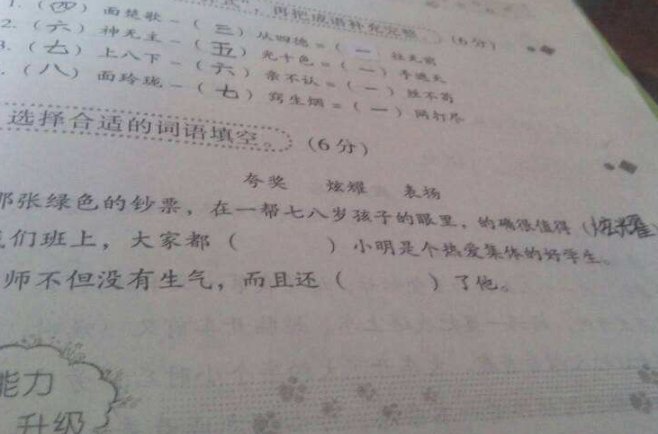 再把成语补充完整。(6分)
1. (四)面楚歌－(三)从四德＝(一)往无前
2. (六)神无主－(五)光十色＝(一)手遮天
3. (七)上八下－(六)亲不认＝(一)丝不苟
. (八)面玲珑－(七)窍生烟＝(一)网打尽
选择合适的词语填空。(6分)
夸奖 炫耀 表扬
那张绿色的钞票，在一帮七八岁孩子的眼里，的确很值得(炫耀
们班上，大家都( )小明是个热爱集体的好学生。
师不但没有生气，而且还( )了他。
能力
升级